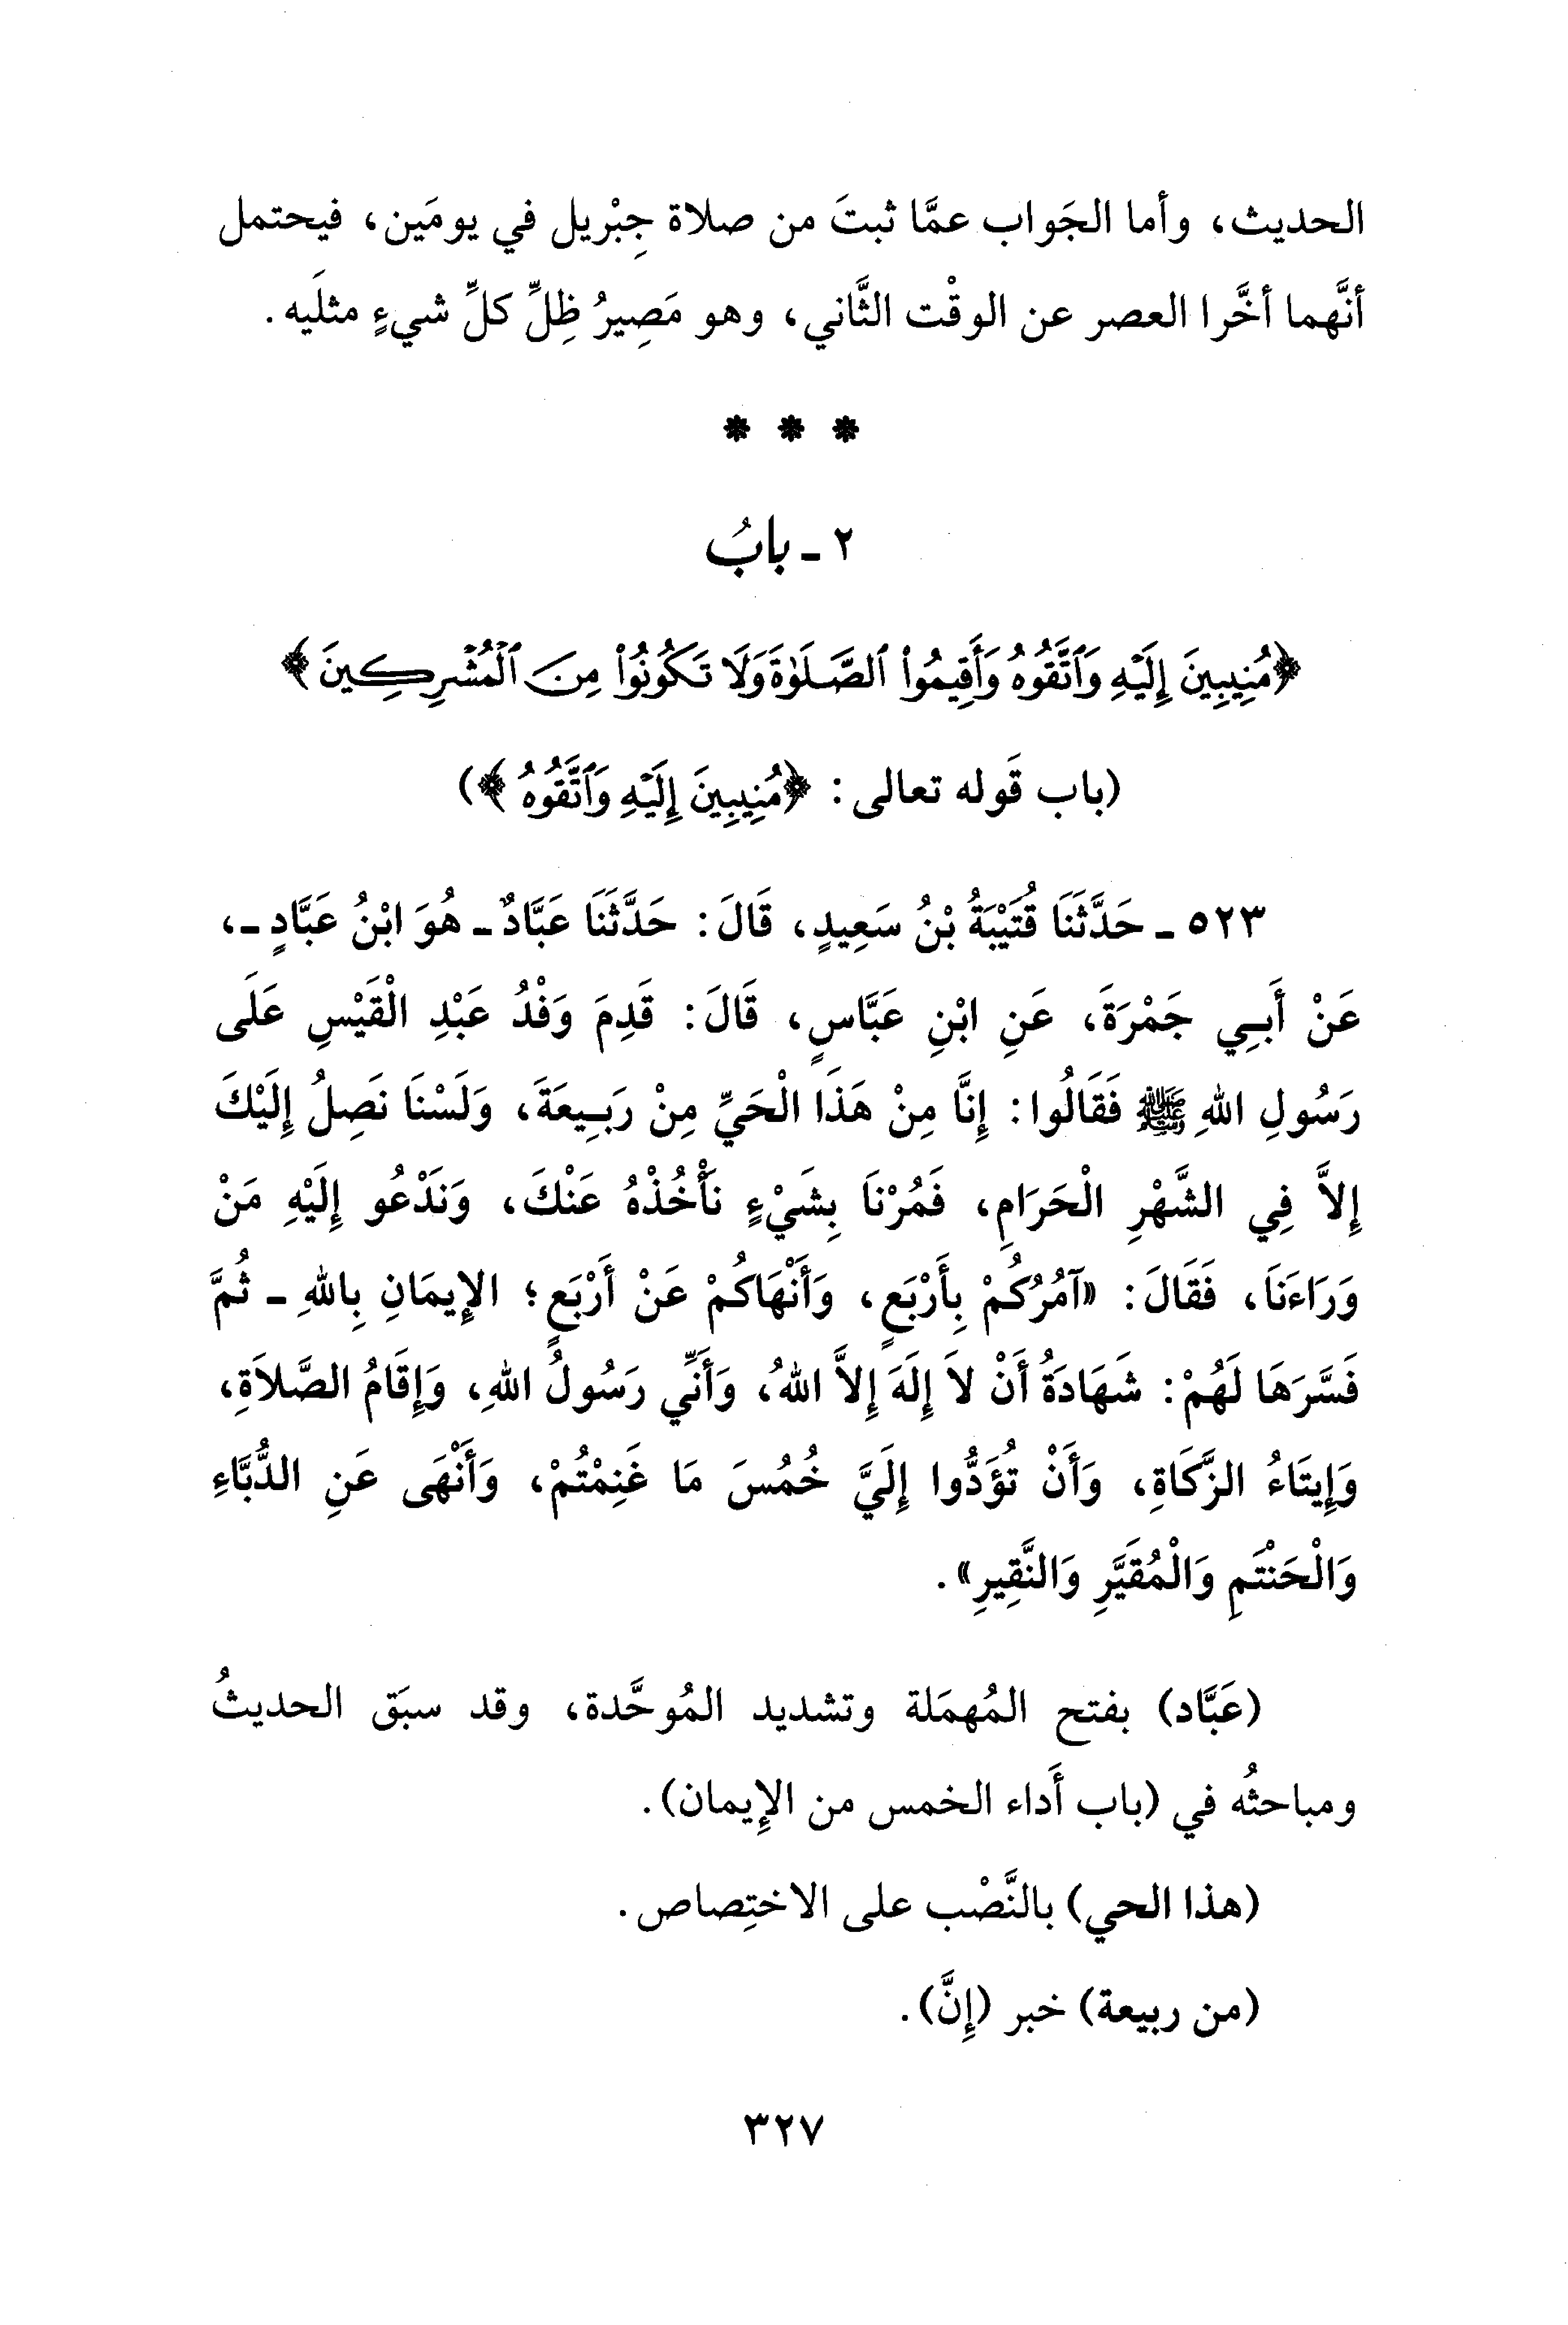 الحديث، وأما الجَواب عمَّا ثبتَ من صلاة جِبْريل في يومَين، فيحتمل
أنَّهما أخَّرا العصر عن الوقْت الثَّاني، وهو مَصِيرُ ظِلِّ كلِّ شيءٍ مثلَيه.
* * *
٢ - بابُ
﴿مُنِيبِينَ إِلَيْهِ وَٱتَّقُوهُ وَأَقِيمُوا۟ ٱلصَّلَوٰةَ وَلَا تَكُونُوا۟ مِنَ ٱلْمُشْرِكِينَ﴾
(باب قَوله تعالى: ﴿مُنِيبِينَ إِلَيْهِ وَٱتَّقُوهُ﴾)
٥٢٣ - حَدَّثَنَا قُتَيْبَةُ بْنُ سَعِيدٍ، قَالَ: حَدَّثَنَا عَبَّادٌ - هُوَ ابْنُ عَبَّادٍ -،
عَنْ أَبِي جَمْرَةَ، عَنِ ابْنِ عَبَّاسٍ، قَالَ: قَدِمَ وَفْدُ عَبْدِ الْقَيْسِ عَلَى
رَسُولِ اللهِ ﷺ فَقَالُوا: إِنَّا مِنْ هَذَا الْحَيِّ مِنْ رَبِيعَةَ، وَلَسْنَا نَصِلُ إِلَيْكَ
إِلاَّ فِي الشَّهْرِ الْحَرَامِ، فَمُرْنَا بِشَيْءٍ نَأْخُذْهُ عَنْكَ، وَنَدْعُو إِلَيْهِ مَنْ
وَرَاءَنَا، فَقَالَ: «آمُرُكُمْ بِأَرْبَعٍ، وَأَنْهَاكُمْ عَنْ أَرْبَعٍ؛ الإِيمَانِ بِاللهِ - ثُمَّ
فَسَّرَهَا لَهُمْ: شَهَادَةُ أَنْ لاَ إِلَهَ إِلاَّ اللهُ، وَأَنِّي رَسُولُ اللهِ، وَإِقَامُ الصَّلاَةِ،
وَإِيتَاءُ الزَّكَاةِ، وَأَنْ تُؤَدُّوا إِلَيَّ خُمُسَ مَا غَنِمْتُمْ، وَأَنْهَى عَنِ الدُّبَّاءِ
وَالْحَنْتَمِ وَالْمُقَيَّرِ وَالنَّقِيرِ».
(عَبَّاد) بفتح المُهمَلة وتشديد المُوحَّدة، وقد سبَق الحديثُ
ومباحثُه في (باب أَداء الخمس من الإِيمان).
(هذا الحي) بالنَّصْب على الاختِصاص.
(من ربيعة) خبر (إِنَّ).
٣٢٧